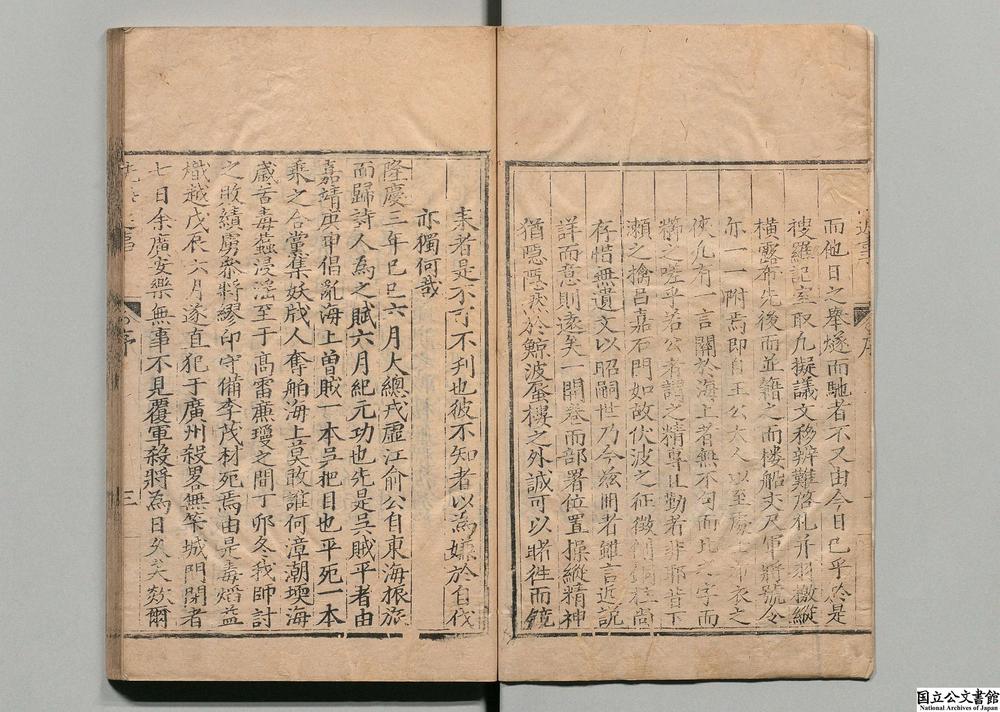 而他日之舉燧而馳者不又由今日已乎於是
搜羅記室取凡擬議文移辨難啓札并羽檄縱
橫露布先後而並籍之而樓船丈尺軍將號令
亦一一附焉即自王公大人以至處士布衣之
俠凡有一言關於海上者無不句而比之字而
櫛之嗟乎若公者謂之精專且勤者非耶昔下
瀨之擒呂嘉石門如故伏波之征徵側銅柱尚
存惜無遺文以昭嗣世乃今茲開者雖言近說
詳而意則遠矣一開卷而部署位置操縱精神
猶隱隱然於鯨波蜃樓之外誠可以睹徃而鏡
來者是不可不刋也彼不知者以為嫌於自伐
亦獨何哉
隆慶三年己巳六月大總戎虛江俞公自東海振旅
而歸詩人為之賦六月紀元功也先是吳賊平者由
嘉靖庚申倡亂海上曾賊一本吳把目也平死一本
乘之合黨集妖戕人奪舶海上莫敢誰何漳潮堧海
歲苦毒螫浸滛至于髙雷廉瓊之間丁卯冬我師討
之敗績虜叅將繆印守備李茂材死焉由是毒熖益
熾越戊辰六月遂直犯于廣州殺畧無筭城門閉者
七日余廣安樂無事不見覆軍殺將為日久矣欻爾
序
三
国立公文書館
National Archives of Japan